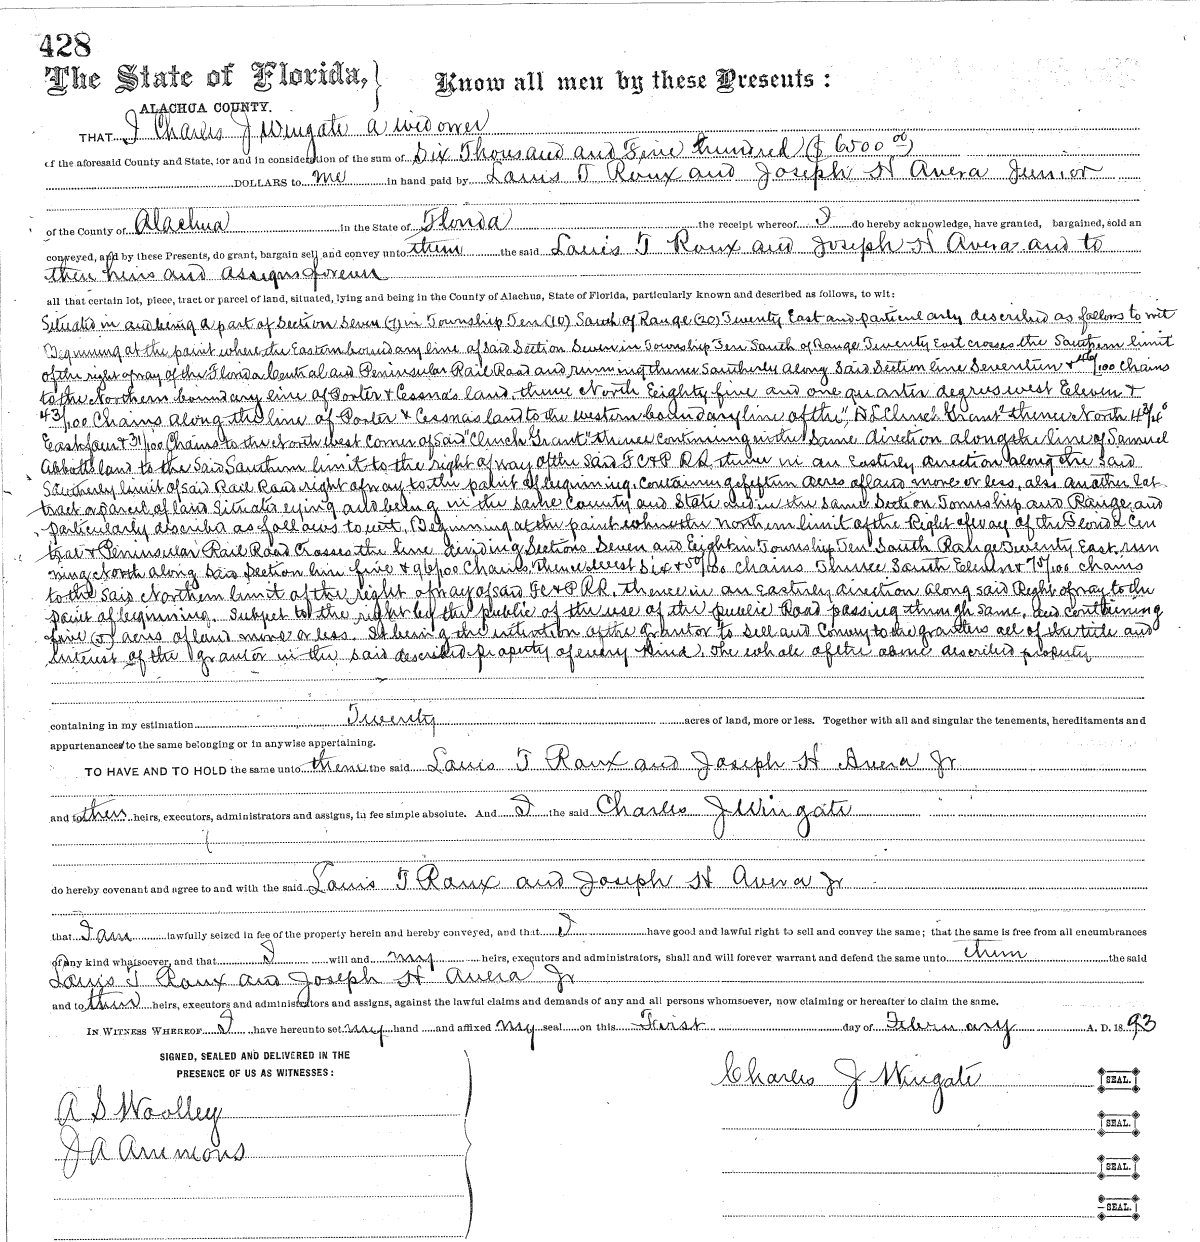 428
The State of Florida, } Know all men by these Presents:
ALACHUA COUNTY.
THAT I Charles J Wingate a widower
of the aforesaid County and State, for and in consideration of the sum of Six Thousand and Five hundred ($ 6500 00)
DOLLARS to me in hand paid by Louis T Roux and Joseph H Avera Junior
of the County of Alachua in the State of Florida the receipt whereof I do hereby acknowledge, have granted, bargained, sold an
conveyed, and by these Presents, do grant, bargain sell and convey unto them the said Louis T Roux and Joseph H Avera and to
their heirs and assigns forever
all that certain lot, piece, tract or parcel of land, situated, lying and being in the County of Alachua, State of Florida, particularly known and described as follows, to wit:
Situated in and being a part of Section Seven (7) in Township Ten (10) South of Range (20) Twenty East and particularly described as follows to wit
Beginning at the point where the Eastern boundary line of said Section Seven in Township Ten South of Range Twenty East crosses the Southern limit
of the right of way of the Florida Central and Peninsular Rail Road and running thence Southerly along said Section line Seventeen & /100 chains
to the Northern boundary line of Porter & Cessna's land, thence North Eighty five and one quarter degrees west Eleven &
43/100 Chains along the line of Porter & Cessnas land to the western boundary line of the "D L Clinch Grant" thence North 43/4°
East & 31/100 Chains to the North west corner of said "Clinch Grant" thence continuing in the same direction along the line of Samuel
Abbotts land to the said Southern limit to the right of way of the said F C & P R R, thence in an Easterly direction along the said
Southerly limit of said Rail Road right of way to the point of beginning, containing fifteen acres of land more or less, also another lot
tract or parcel of land situate lying and being in the same County and State and in the same Section Township and Range and
particularly described as follows to wit, Beginning at the point where the northern limit of the Right of way of the Florida Cen
tral & Peninsular Rail Road crosses the line dividing Sections Seven and Eight in Township Ten South Range Twenty East, run
ning North along said Section line five & 96/100 Chains, thence West Six & 50/100 chains Thence South Eleven & 75/100 chains
to the said Northern limit of the right of way of said F C & P R R, thence in an Easterly direction along said Right of way to the
point of beginning. Subject to the right by the public of the use of the public Road passing through same, and containing
five (5) acres of land more or less. It being the intention of the grantor to sell and convey to the grantees all of the title and
interest of the grantor in the said described property of every kind. The whole of the above described property
containing in my estimation Twenty acres of land, more or less. Together with all and singular the tenements, hereditaments and
appurtenances to the same belonging or in anywise appertaining.
TO HAVE AND TO HOLD the same unto them the said Louis T Roux and Joseph H Avera Jr
and to their heirs, executors, administrators and assigns, in fee simple absolute. And I the said Charles J Wingate
do hereby covenant and agree to and with the said Louis T Roux and Joseph H Avera Jr
that I am lawfully seized in fee of the property herein and hereby conveyed, and that I have good and lawful right to sell and convey the same; that the same is free from all encumbrances
of any kind whatsoever, and that I will and my heirs, executors and administrators, shall and will forever warrant and defend the same unto them the said
Louis T Roux and Joseph H Avera Jr
and to their heirs, executors and administrators and assigns, against the lawful claims and demands of any and all persons whomsoever, now claiming or hereafter to claim the same.
IN WITNESS WHEREOF I have hereunto set my hand and affixed my seal on this First day of February A. D. 1893
SIGNED, SEALED AND DELIVERED IN THE
PRESENCE OF US AS WITNESSES:
Charles J Wingate SEAL.
A S Woolley
SEAL.
J A Ammons
SEAL.
SEAL.